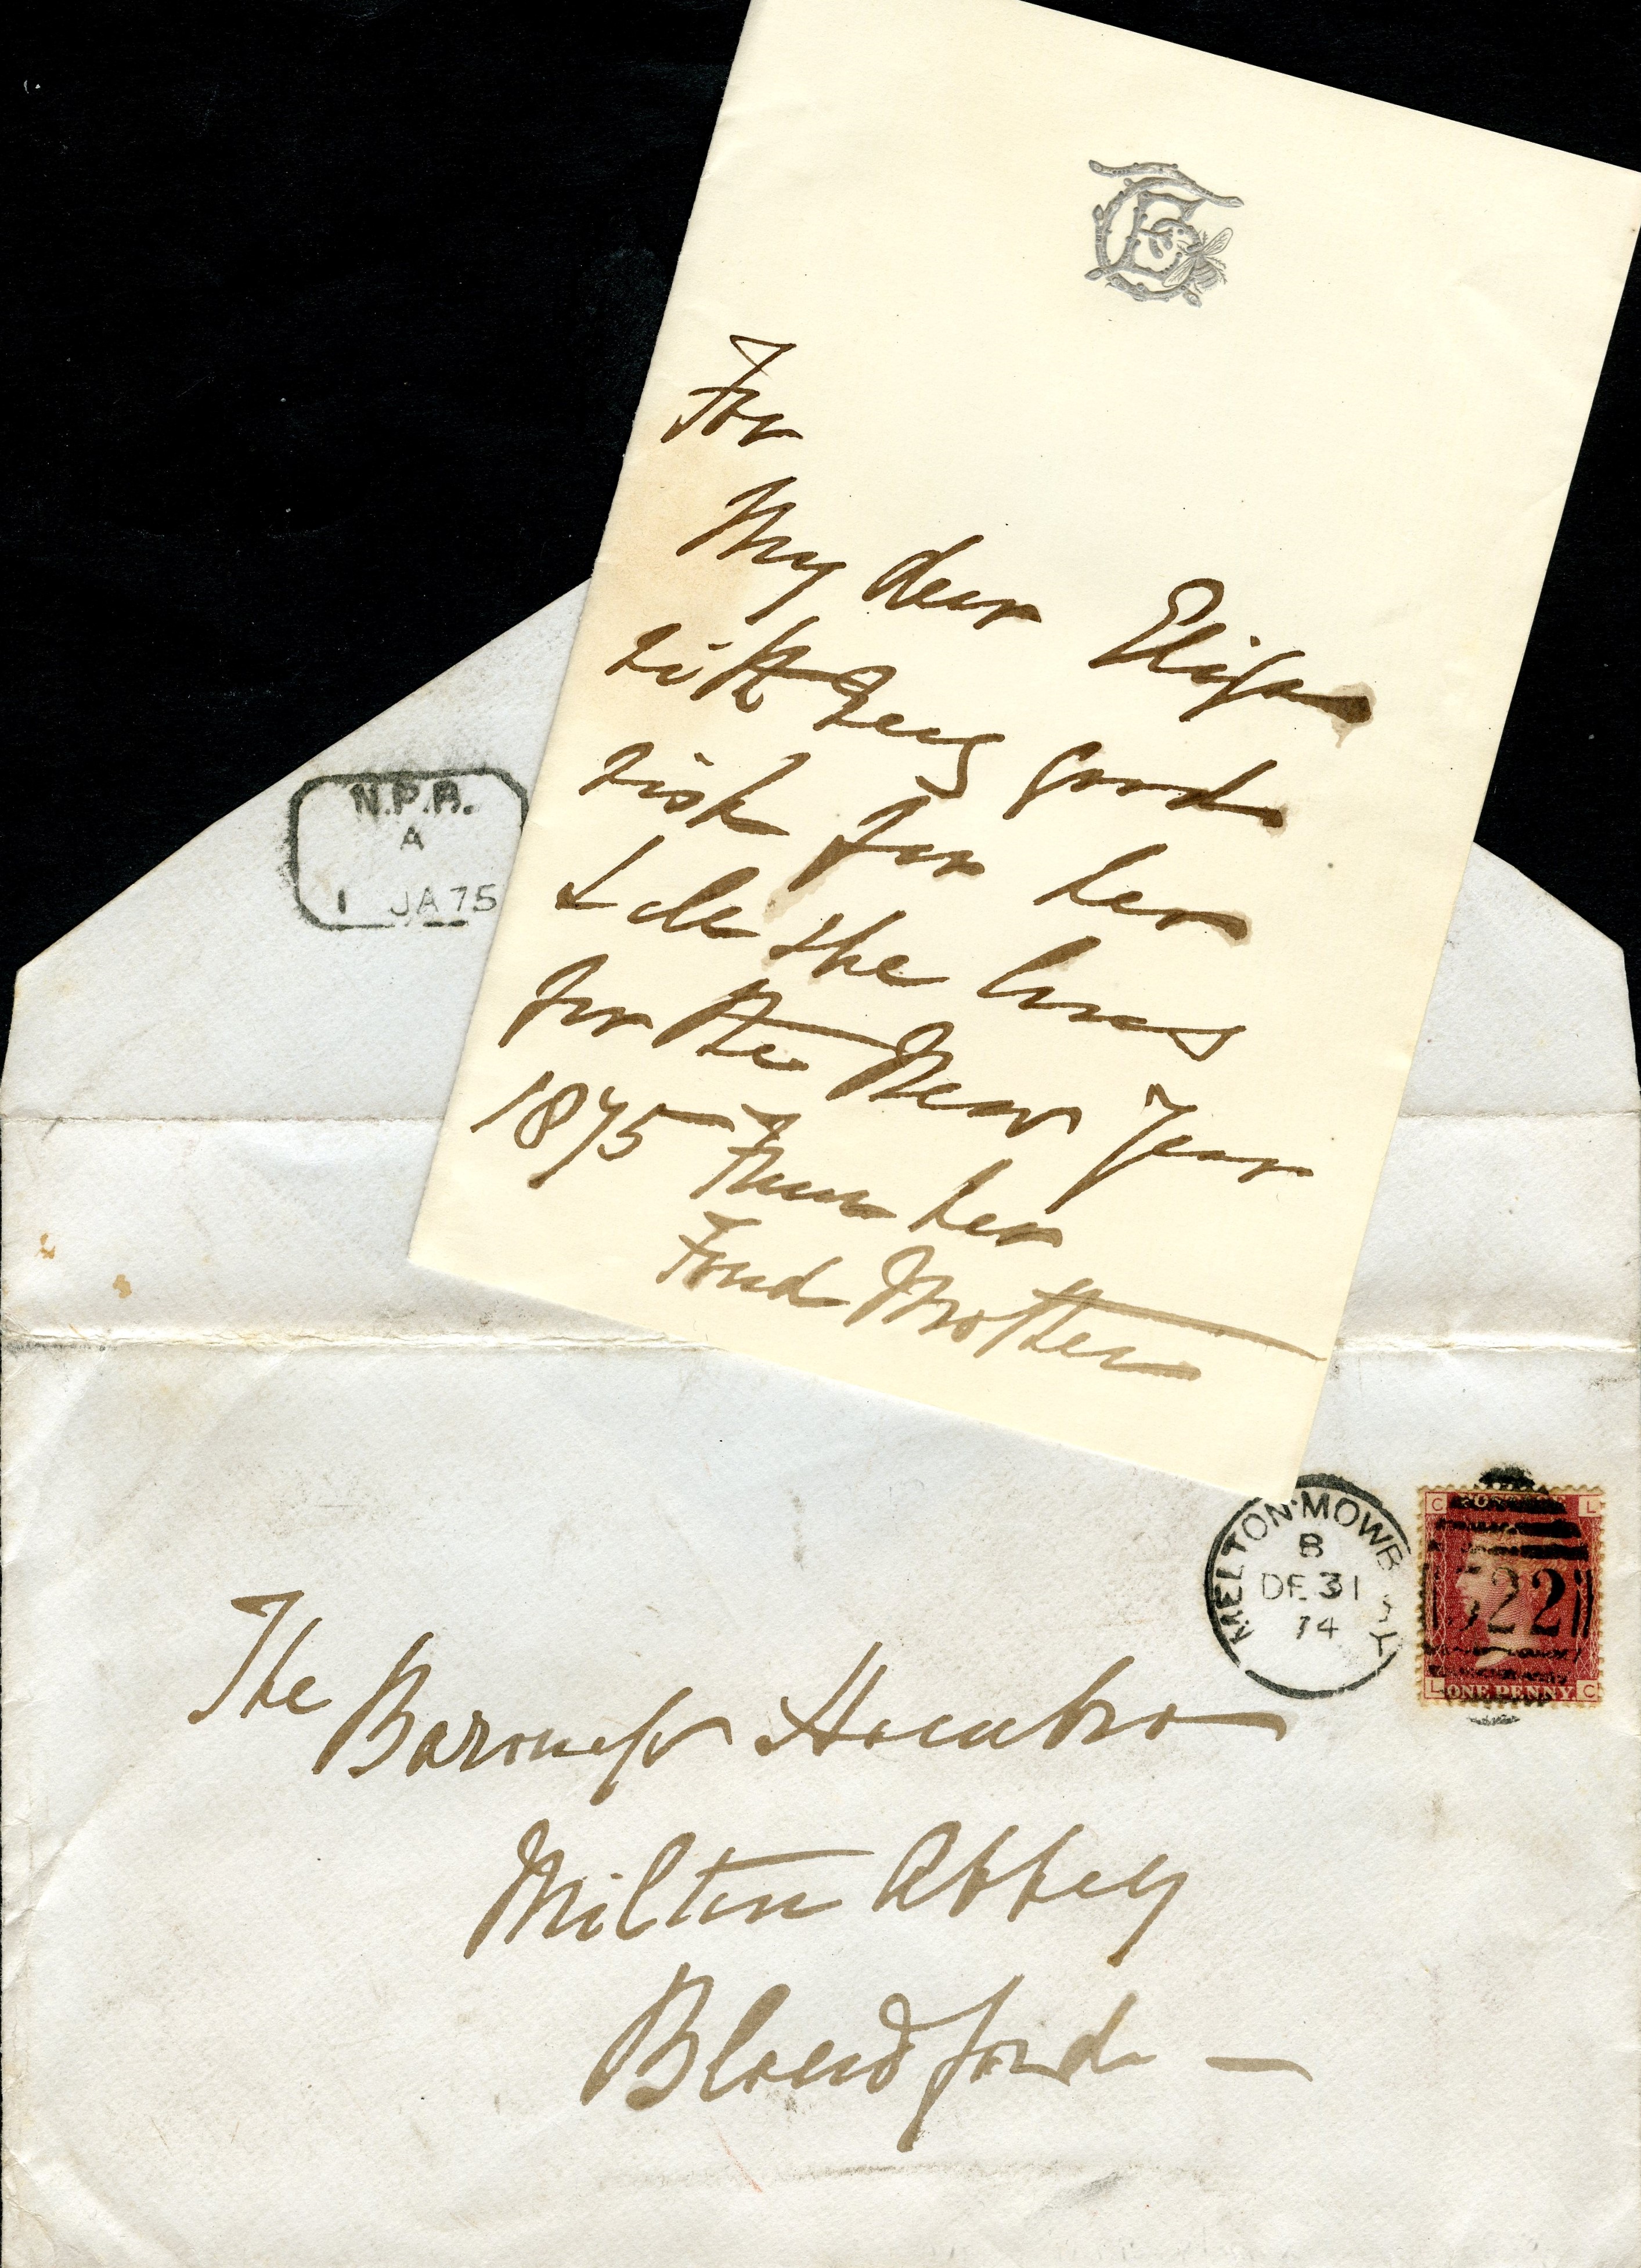 For
My dear Eliza
with every good
wish for her
& all she loves
for the New Year
1875 From her
Fond Mother
N.P.B.
A
1 JA 75
MELTON·MOWBRAY
B
DE 31
74
C POSTAGE L
522
L ONE PENNY C
The Baroness Hambro
Milton Abbey
Blandford —